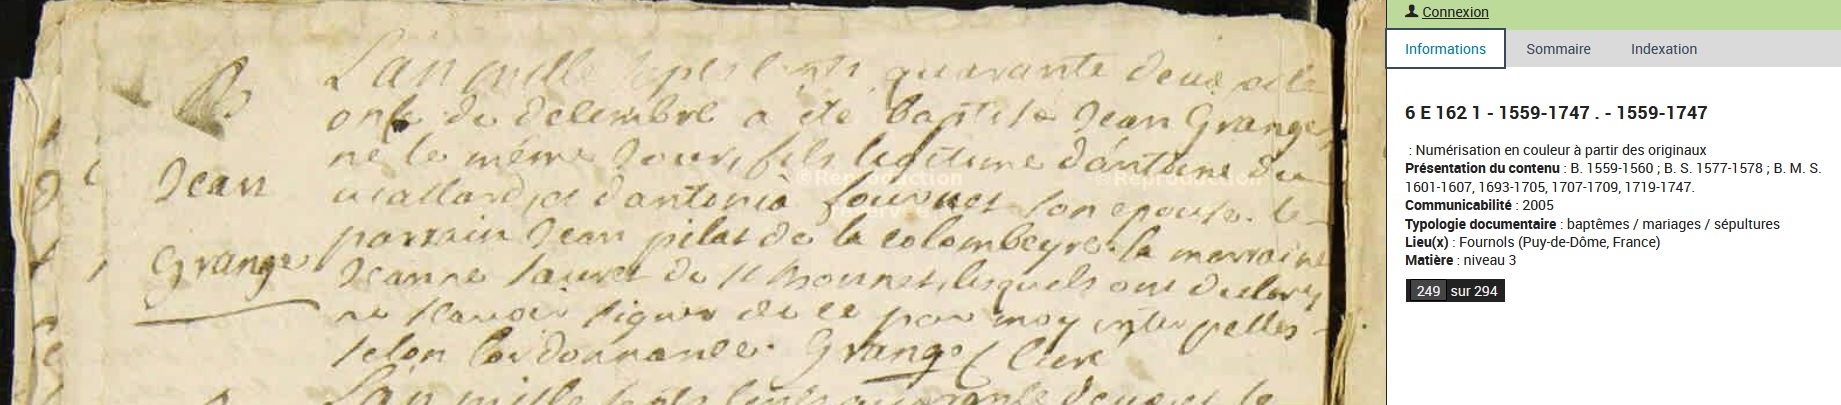 B.
Jean
Grange
L'an mille sept cents quarante deux et le
onse du decembre a été baptisé Jean Grange
né le même jour, fils legitime d'antoine du
viallard, et d'antonia fournet son epouse. le
parrain Jean pilat de la colombeyre. la marraine
Jeanne fauret de st bonnet, lesquels ont declaré
ne sçavoir signer de ce par moy interpelles
selon l'ordonnance. Grange Curé
L'an mille sept cents quarante deux et le
©Reproduction
©Reproduction
Connexion
Informations Sommaire Indexation
6 E 162 1 - 1559-1747 . - 1559-1747
: Numérisation en couleur à partir des originaux
Présentation du contenu : B. 1559-1560 ; B. S. 1577-1578 ; B. M. S.
1601-1607, 1693-1705, 1707-1709, 1719-1747.
Communicabilité : 2005
Typologie documentaire : baptêmes / mariages / sépultures
Lieu(x) : Fournols (Puy-de-Dôme, France)
Matière : niveau 3
249 sur 294